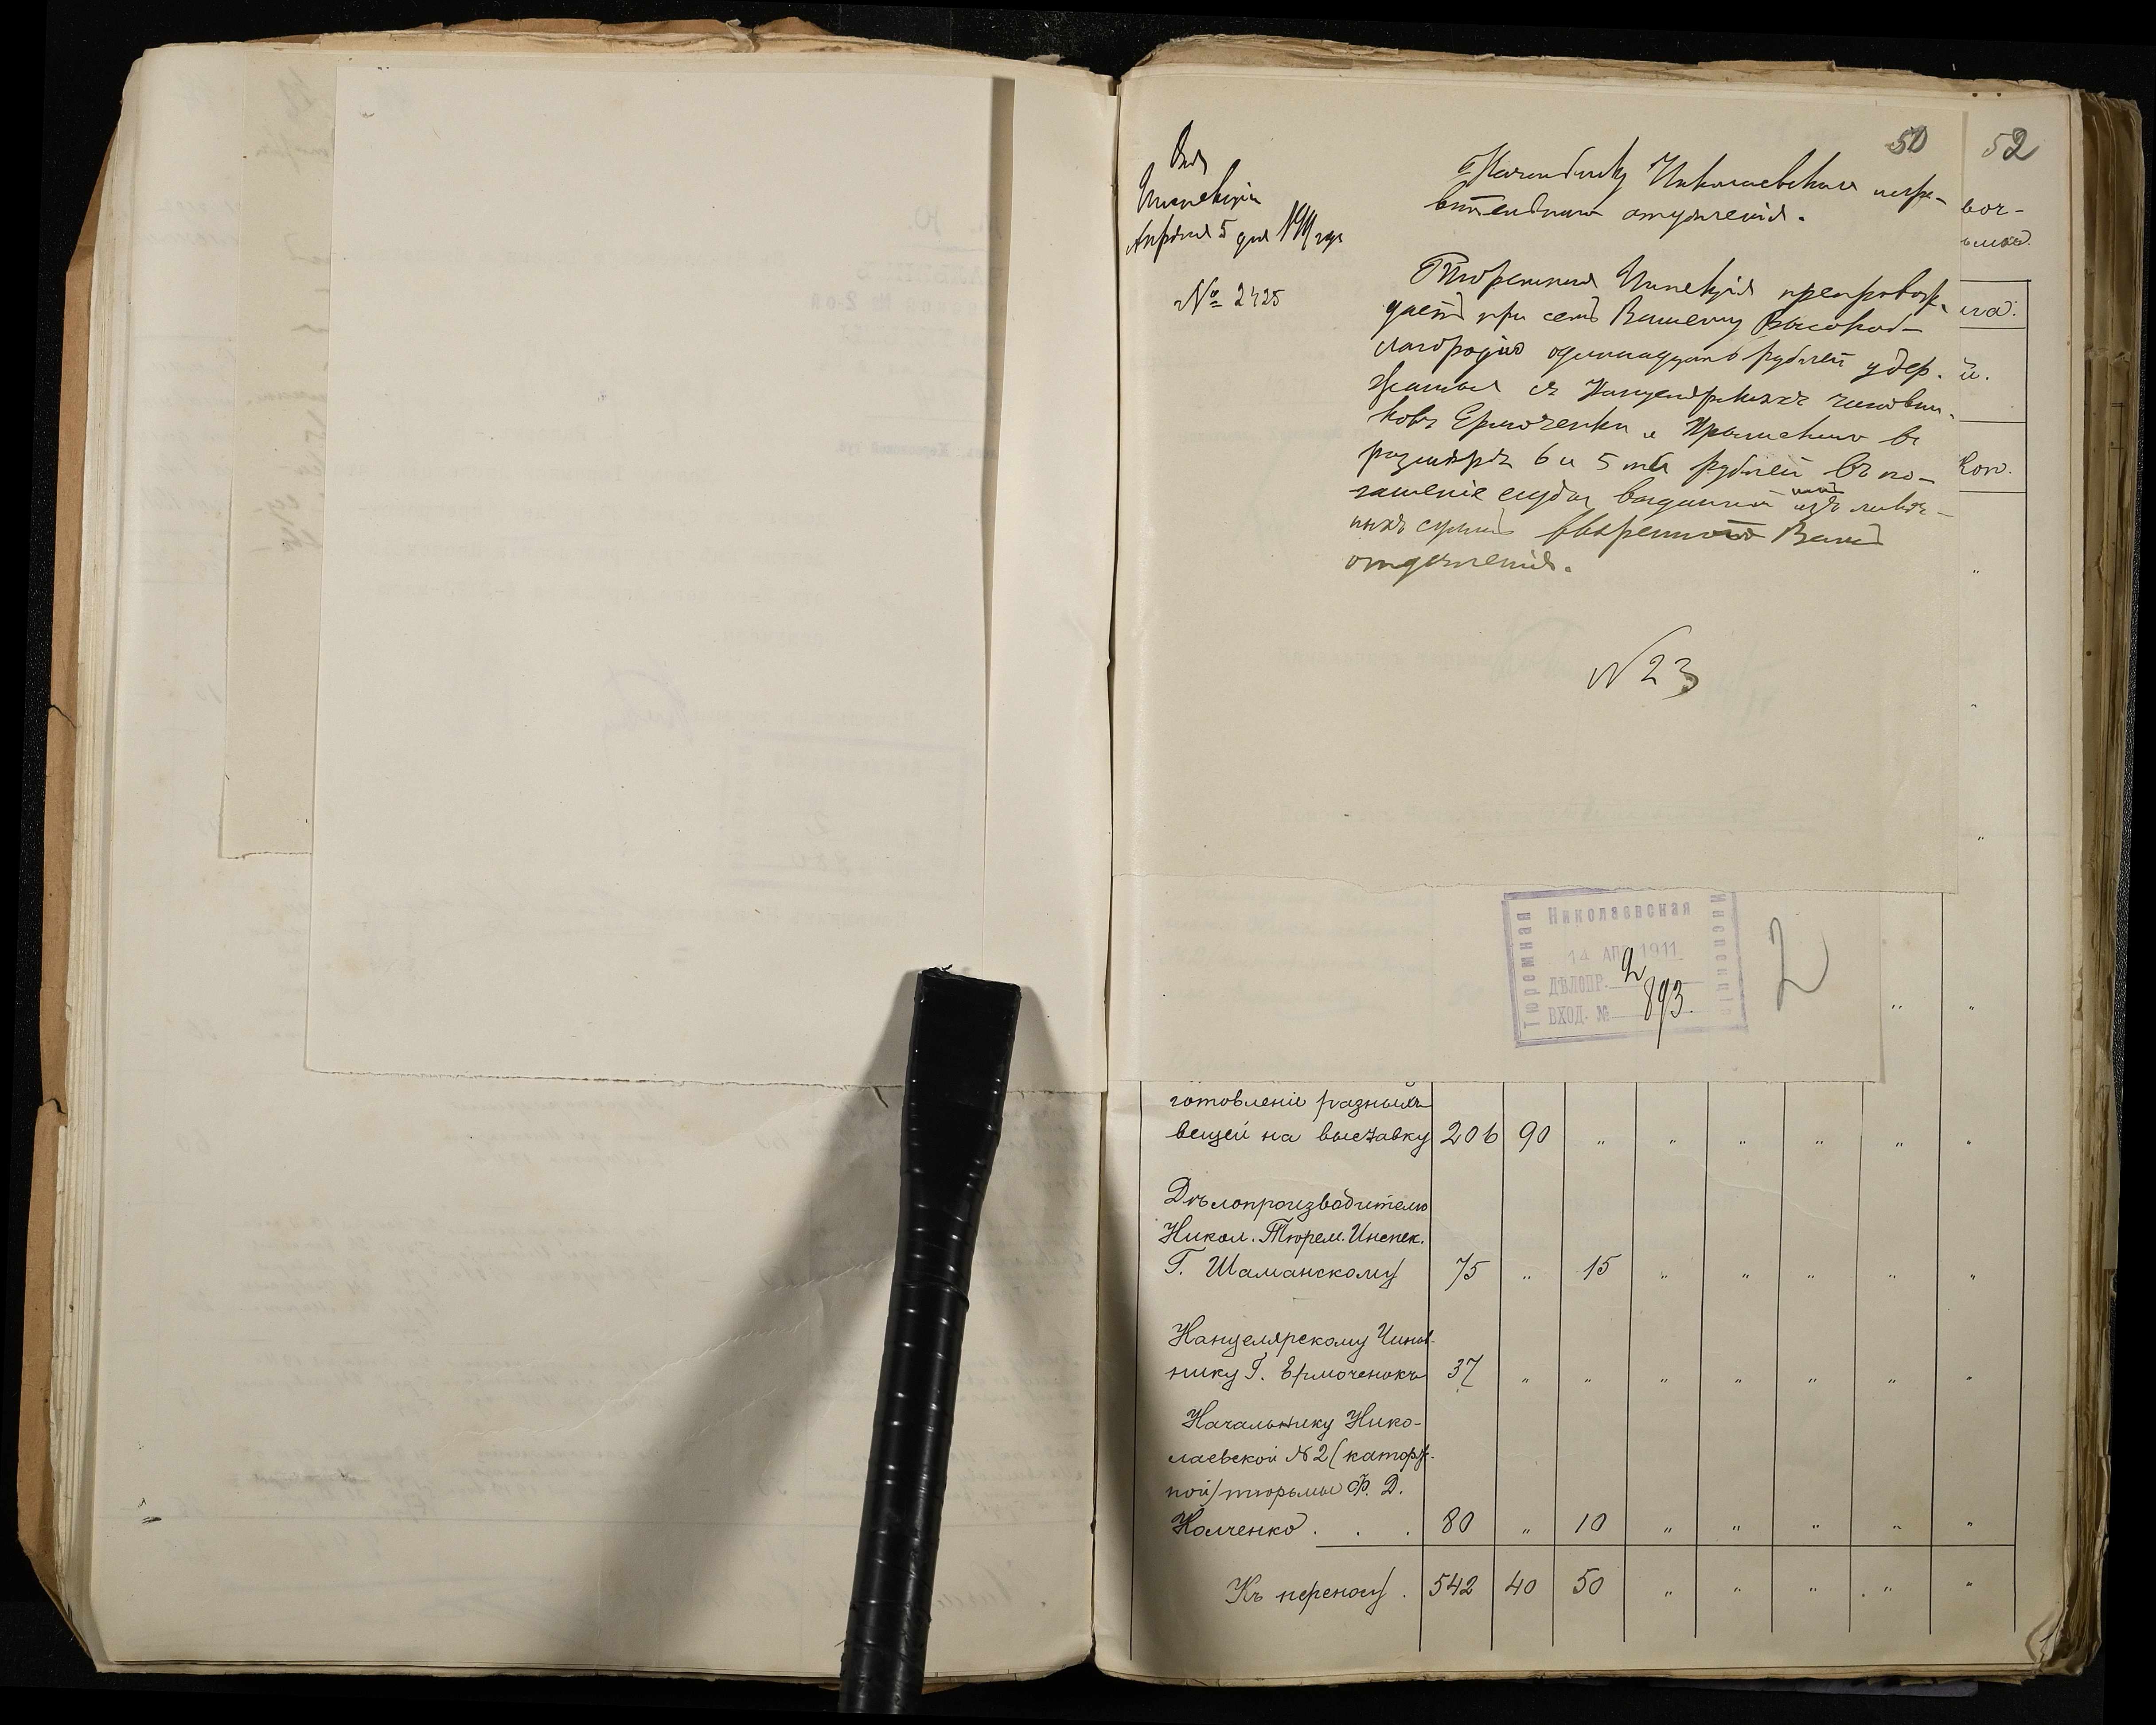 50
52
Инспекція
Апрѣля 5 дня 1911 года
№ 2425
Начальнику Николаевскаго испра-
вительнаго отдѣленія.
Тюремная Инспекція препровож-
даетъ при семъ Вашему Высокоб-
лагородію одиннадцать рублей удер-
жанныя съ Канцелярскихъ чиновни-
ковъ Ермоченка и Крамскаго въ
размѣрѣ 6 и 5 рублей въ по-
гашеніе ссуды выданной изъ
ныхъ суммъ ввѣреннаго Вамъ
отдѣленія.
№ 23
воч-
й.
Коп.
Николаевская
Тюремная
Инспекція
14 АПР 1911
ДѢЛОПР. 2
ВХОД. № 893.
2
готовленіе разныхъ
вещей на выставку 206 90 " " " " " "
Дѣлопроизводителю
Никол. Тюрем. Инспек.
Г. Шаманскому 75 " 15 " " " " "
Канцелярскому Чинов-
нику Г. Ермоченокъ 37 " " " " " " "
Начальнику Нико-
лаевской №2 (каторж-
ной) тюрьмы Ф. Д.
Колченко . . . 80 " 10 " " " " "
Къ переносу . 542 40 50 " " " " "